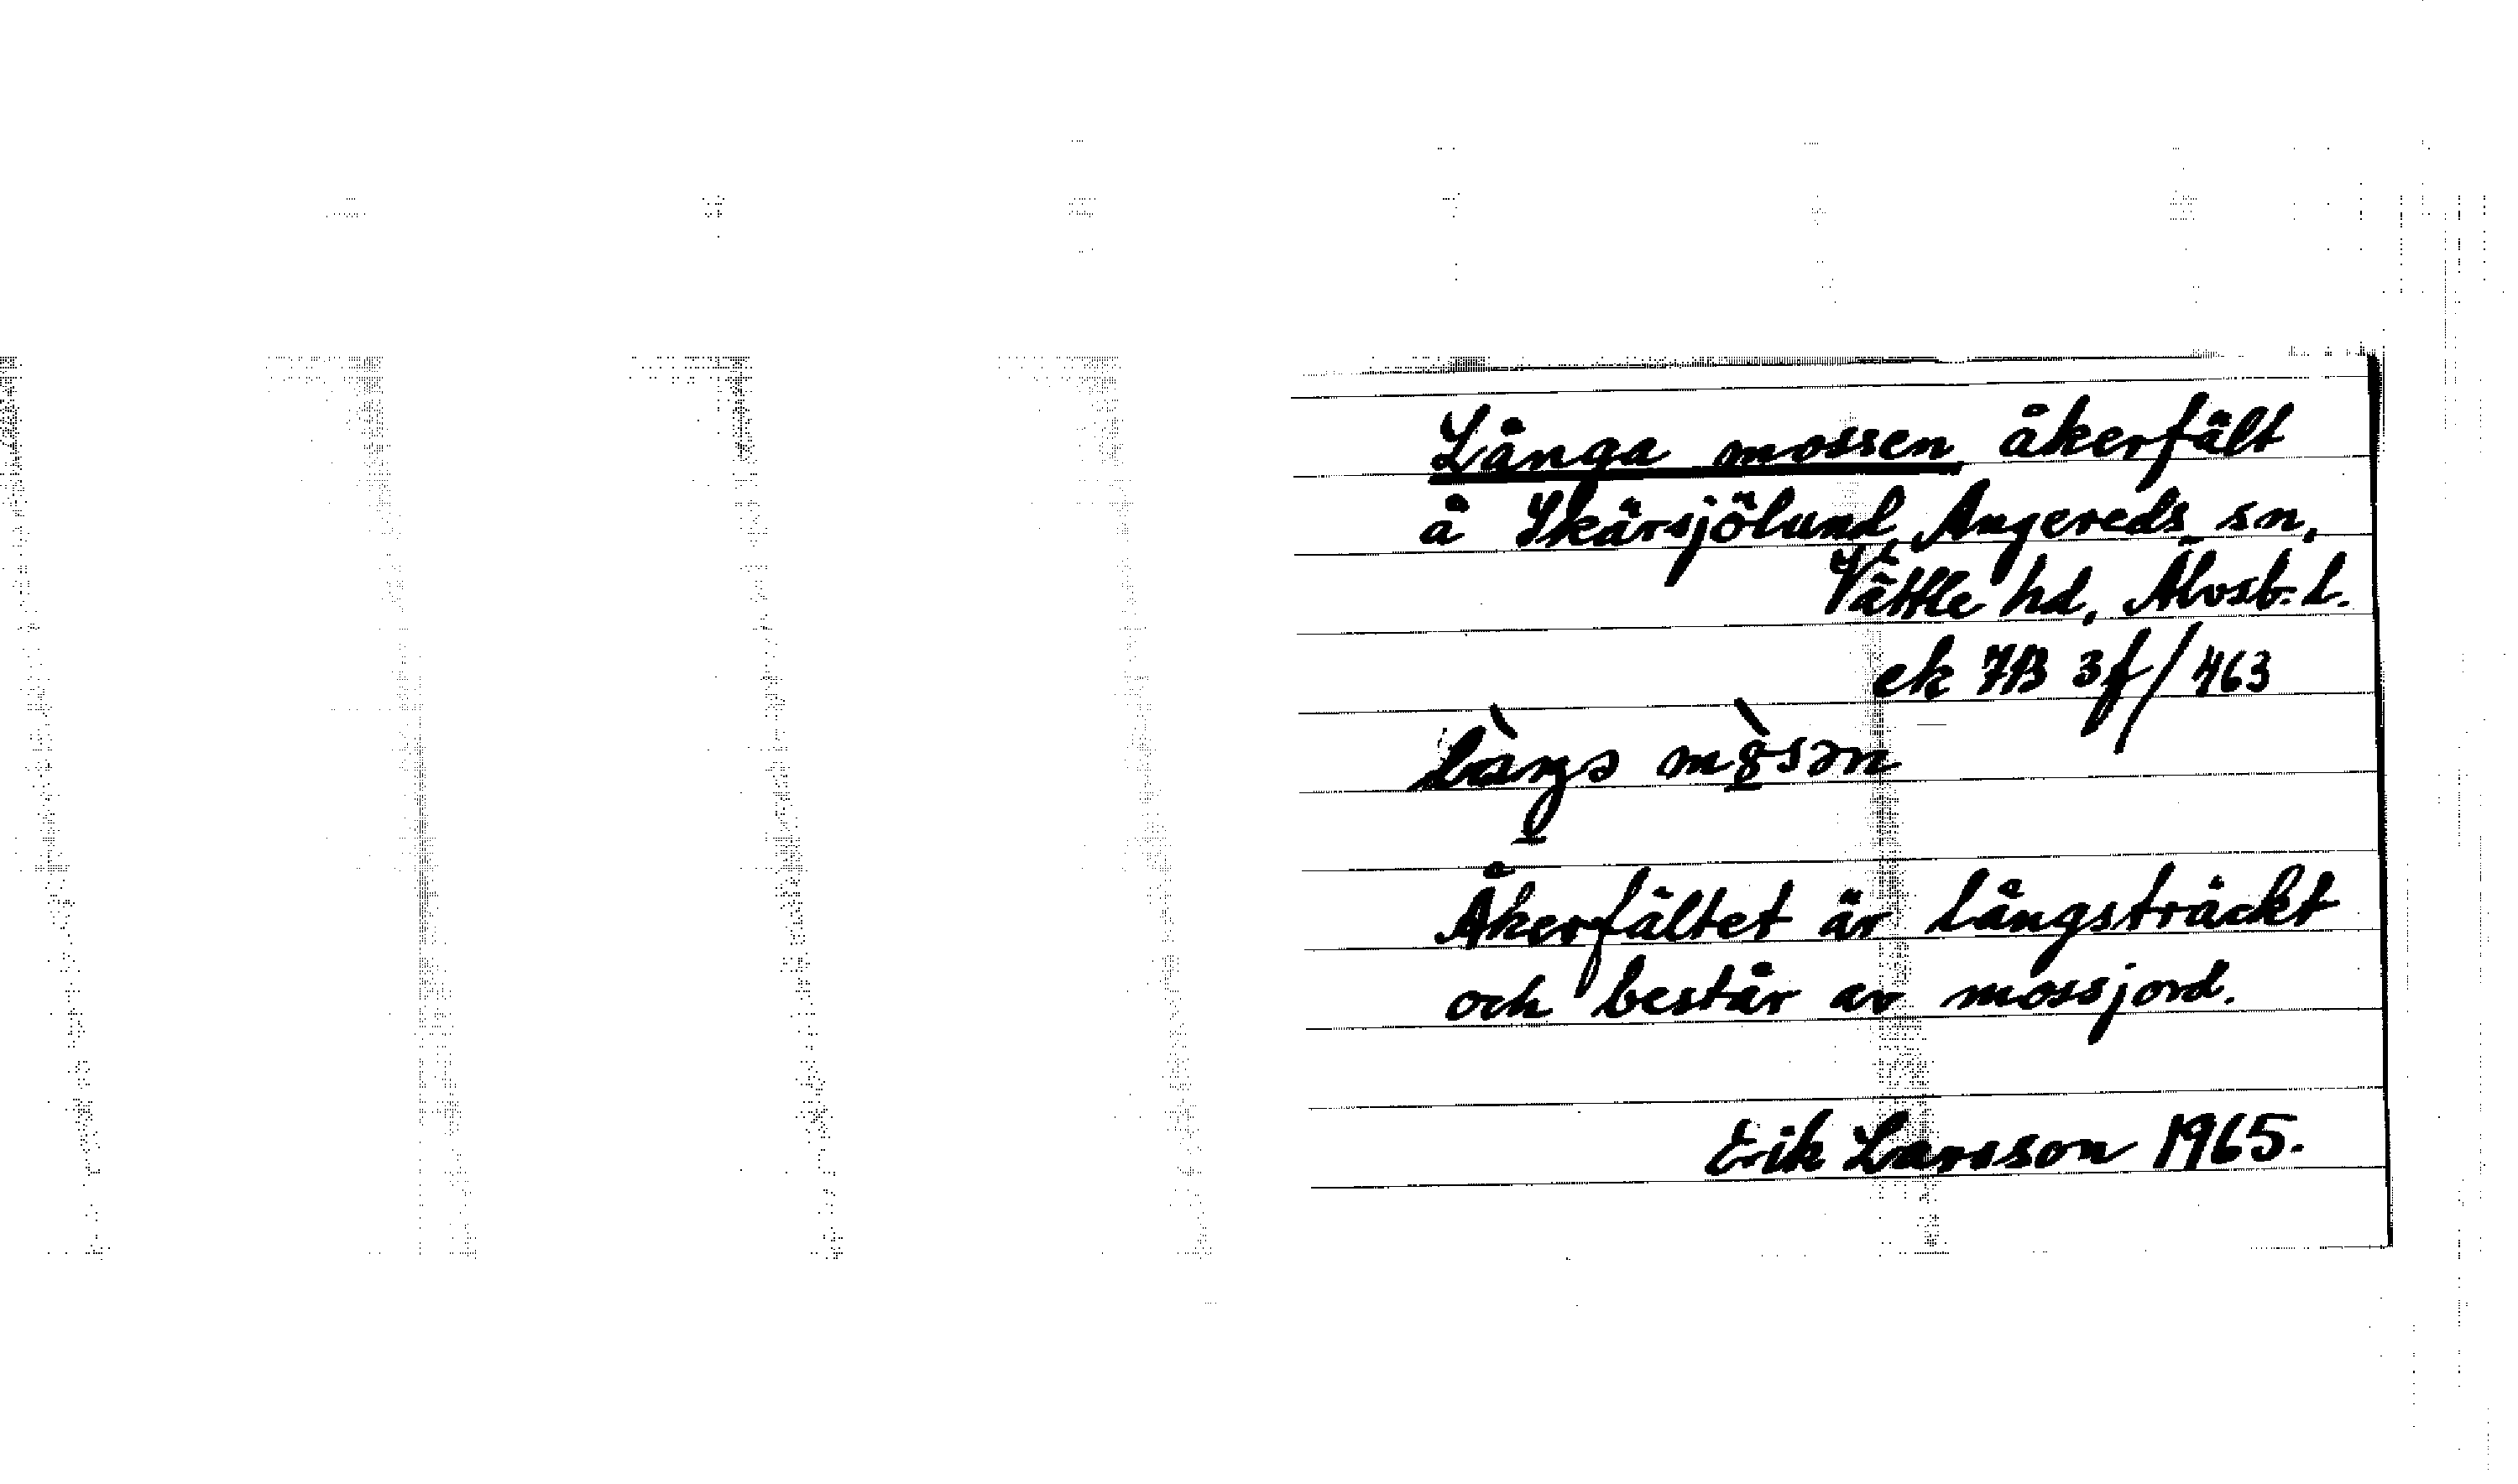 Långa mossen, åkerfält
å Skärsjölund, Angereds sn,
Vättle hd, Älvsb. l.
ek 7B 3f/463
Åkerfältet är långsträckt
och består av mossjord.
Erik Larsson 1965.